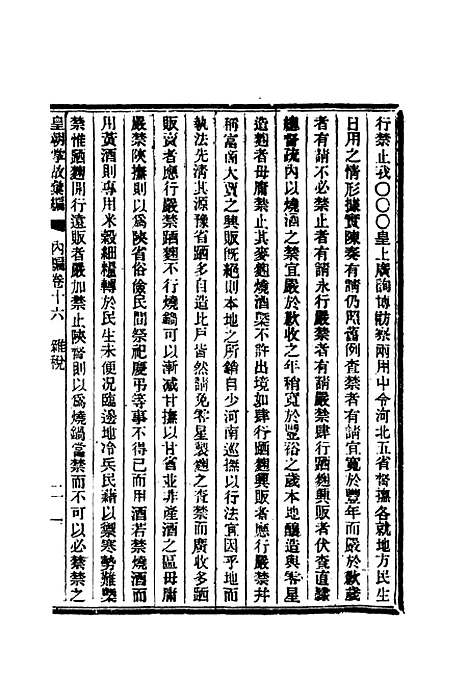 行禁止我〇〇〇皇上廣詢博訪察兩用中令河北五省督撫各就地方民生
日用之情形據實陳奏有請仍照舊例查禁者有請宜寬於豐年而嚴於歉歲
者有請不必禁止者有請永行嚴禁者有請嚴禁肆行跴麯興販者伏查直隸
總督疏內以燒酒之禁宜嚴於歉收之年稍寬於豐裕之歲本地釀造與零星
造麯者毋庸禁止其麥麯燒酒槩不許出境如肆行跴麯興販者應行嚴禁幷
稱富商大賈之興販旣絕則本地之所銷自少河南巡撫以行法宜因乎地而
執法先淸其源豫省跴多自造比戶皆然請免零星製麯之查禁而廣收多跴
販賣者應行嚴禁跴麯不行燒鍋可以漸減甘撫以甘省並非產酒之區毋庸
嚴禁陝撫則以爲陝省俗儉民間祭祀慶弔等事不得已而用酒若禁燒酒而
用黃酒則專用米穀細糧轉於民生未便況臨邊地冷兵民藉以禦寒勢難槩
禁惟跴麯開行遠販者嚴加禁止陝督則以爲燒鍋當禁而不可以必禁禁之
皇朝掌故彙編 內編卷十六 雜稅 二一